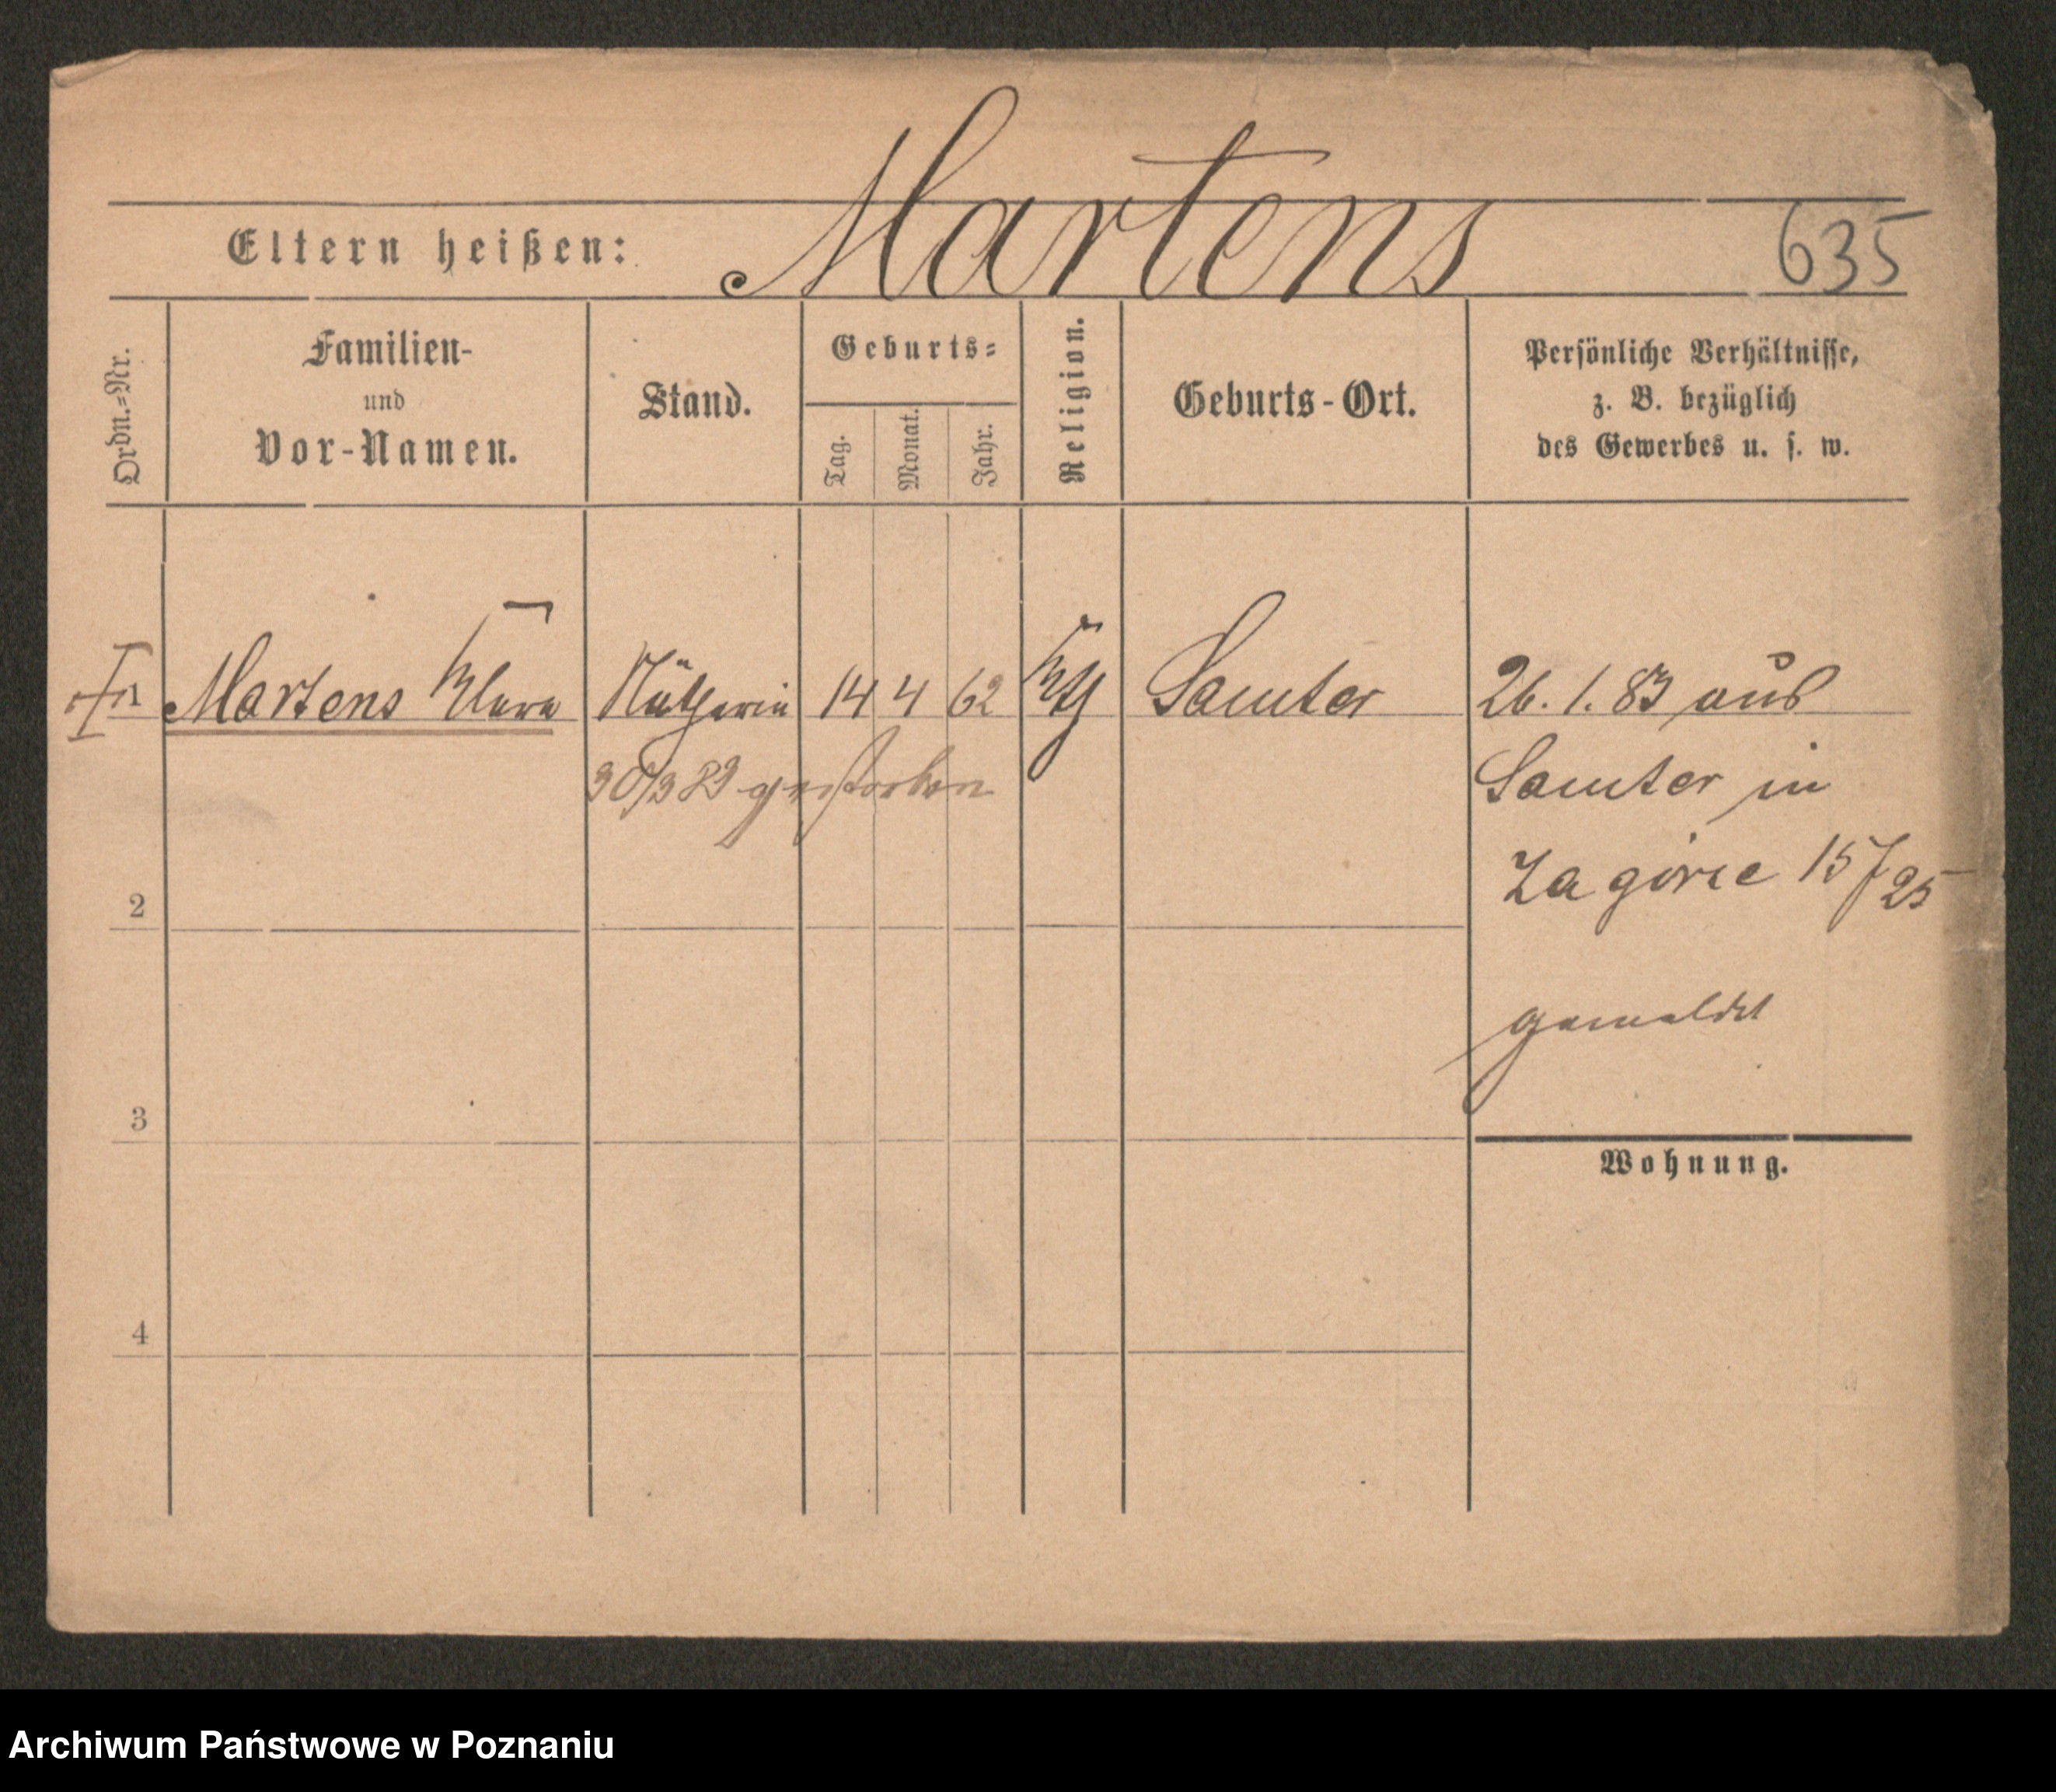 Martens
Eltern heißen: 635
Ordn.-Nr.
Familien-
und
Vor-Namen.
Stand.
Geburts-
Tag.
Monat.
Jahr.
Religion.
Geburts-Ort.
Persönliche Verhältnisse,
z. B. bezüglich
des Gewerbes u. s. w.
1 Martens Klara Näherin 14 4 62 Samter 26. 1. 83 aus
30/3 83 gestorben Samter in
Zagórze 15/25
2
gemeldet
3
Wohnung.
4
Archiwum Państwowe w Poznaniu